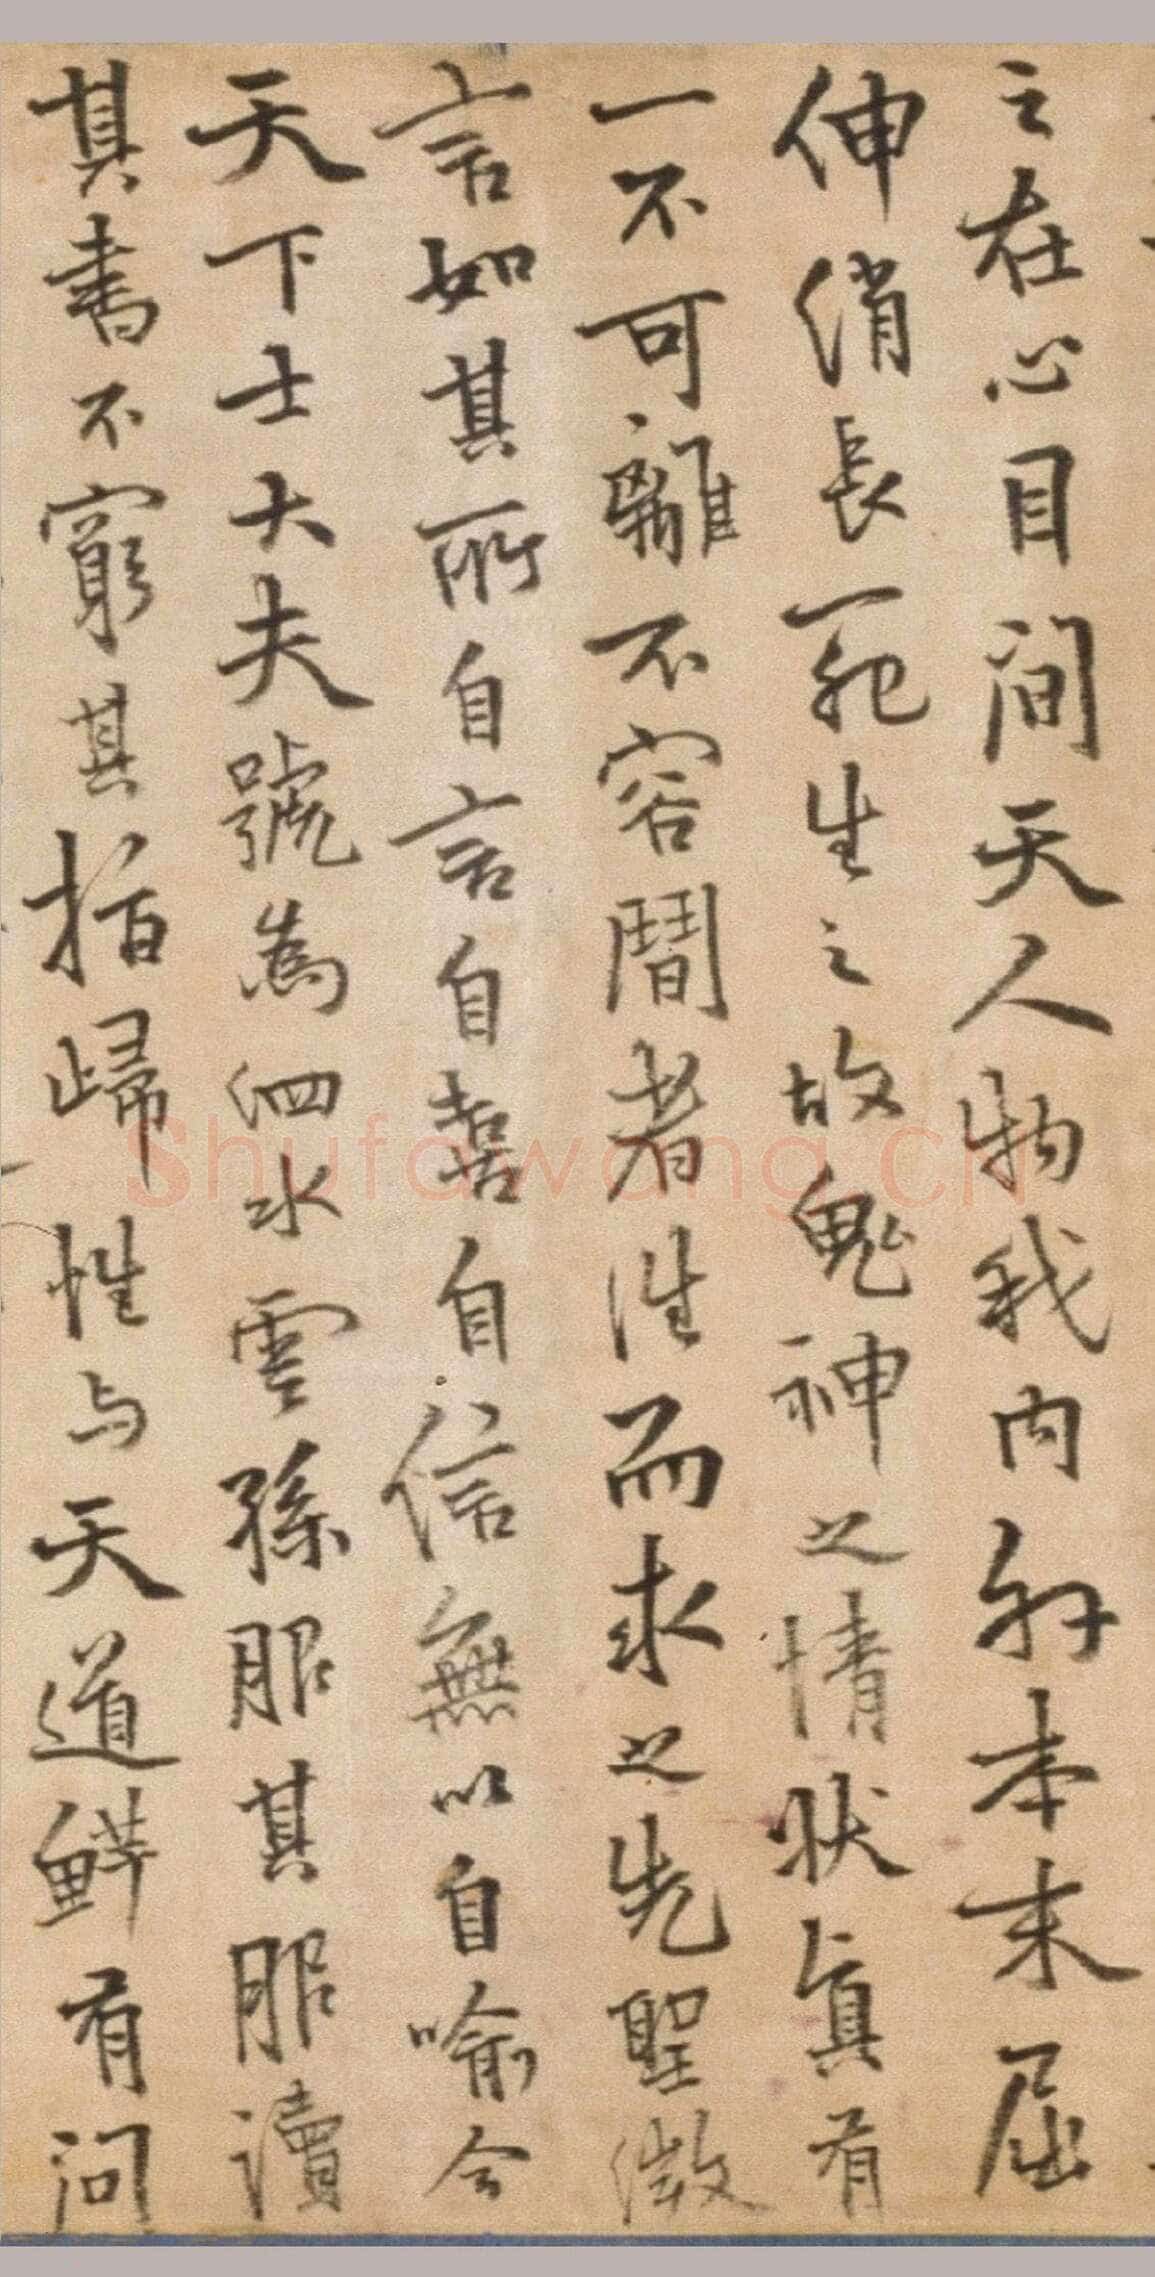 之在心目間天人物我内外本末屈
伸消長死生之故鬼神之情狀真有
一不可離不容間者性而求之先聖微
言如其所自言自喜自信無以自喻今
天下士大夫號為泗水雲孫服其服讀
其書不窮其指歸性与天道鮮有问
Shufawang.cn